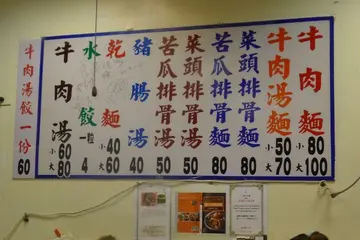 牛肉麵 小80 大100
牛肉湯麵 小50 大70
菜頭排骨麵 80
苦瓜排骨麵 80
菜頭排骨湯 50
苦瓜排骨湯 50
豬腸湯 40
乾麵 小40 大60
水餃一粒 4
牛肉湯 小60 大80
牛肉湯餃一份 60